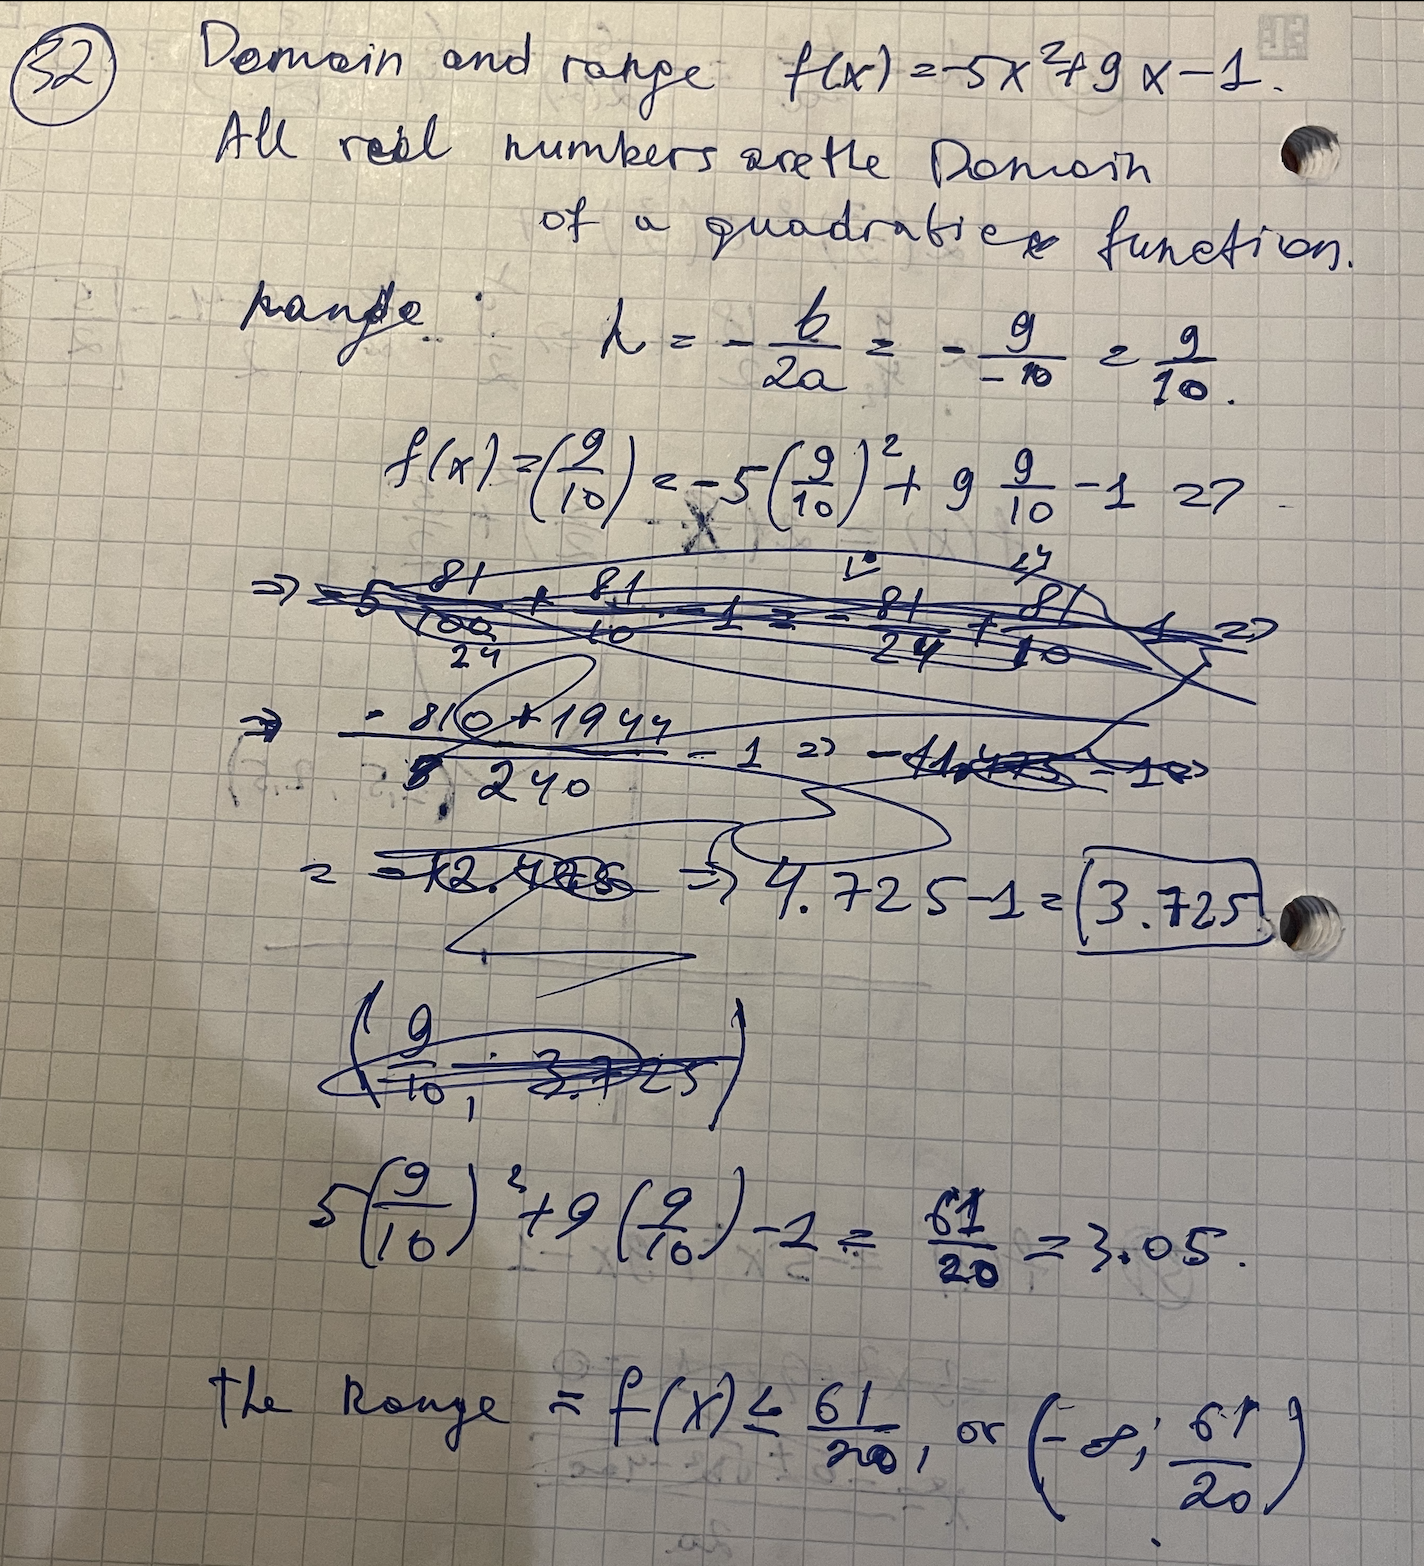 32 Domain and range f(x) = -5x²+9x-1.
All real numbers are the Domain
of a quadratic function.
Range: h = - b/2a = - 9/-10 = 9/10.
f(x) = (9/10) = -5(9/10)² + 9 9/10 - 1 =>
=> -5 81/100 + 81/10 - 1 = - 81/24 + 81/10 - 1 =>
24
=> -810+1944/240 - 1 => - - 1 =>
= => 4.725-1 = 3.725
(9/10, 3.725)
5(9/10)²+9(9/10)-1 = 61/20 = 3.05.
the Range = f(x) ≤ 61/20, or (-∞; 61/20)